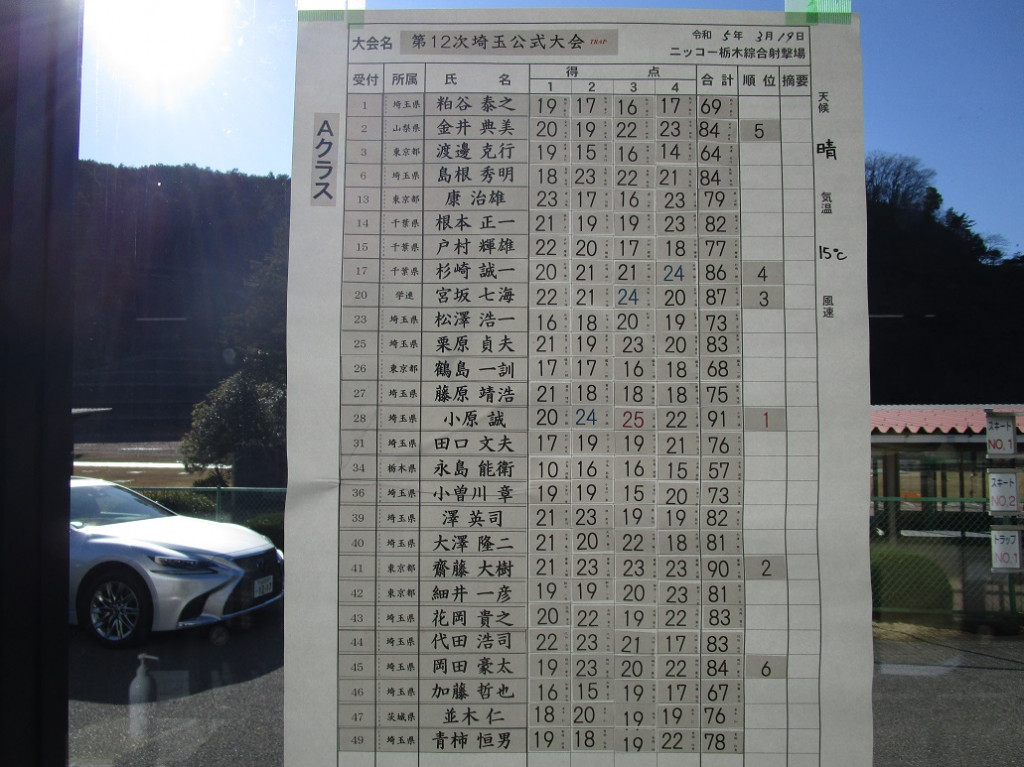 大会名 第12次埼玉公式大会 TRAP 令和 5年 3月19日
ニッコー栃木綜合射撃場
Aクラス
受付 所属 氏名 得点 合計 順位 摘要
1 2 3 4
1 埼玉県 粕谷 泰之 19 17 16 17 69
2 山梨県 金井 典美 20 19 22 23 84 5
3 東京都 渡邊 克行 19 15 16 14 64
6 埼玉県 島根 秀明 18 23 22 21 84
13 東京都 康 治雄 23 17 16 23 79
14 千葉県 根本 正一 21 19 19 23 82
15 千葉県 戸村 輝雄 22 20 17 18 77
17 千葉県 杉崎 誠一 20 21 21 24 86 4
20 学連 宮坂 七海 22 21 24 20 87 3
23 埼玉県 松澤 浩一 16 18 20 19 73
25 埼玉県 栗原 貞夫 21 19 23 20 83
26 東京都 鶴島 一訓 17 17 16 18 68
27 埼玉県 藤原 靖浩 21 18 18 18 75
28 埼玉県 小原 誠 20 24 25 22 91 1
31 埼玉県 田口 文夫 17 19 19 21 76
34 栃木県 永島 能衛 10 16 16 15 57
36 埼玉県 小曽川 章 19 19 15 20 73
39 埼玉県 澤 英司 21 23 19 19 82
40 埼玉県 大澤 隆二 21 20 22 18 81
41 東京都 齋藤 大樹 21 23 23 23 90 2
42 東京都 細井 一彦 19 19 20 23 81
43 埼玉県 花岡 貴之 20 22 19 22 83
44 埼玉県 代田 浩司 22 23 21 17 83
45 埼玉県 岡田 豪太 19 23 20 22 84 6
46 埼玉県 加藤 哲也 16 15 19 17 67
47 茨城県 並木 仁 18 20 19 19 76
49 埼玉県 青柿 恒男 19 18 19 22 78
天候
晴
気温
15℃
風速
スキート
NO.1
スキート
NO.2
トラップ
NO.1